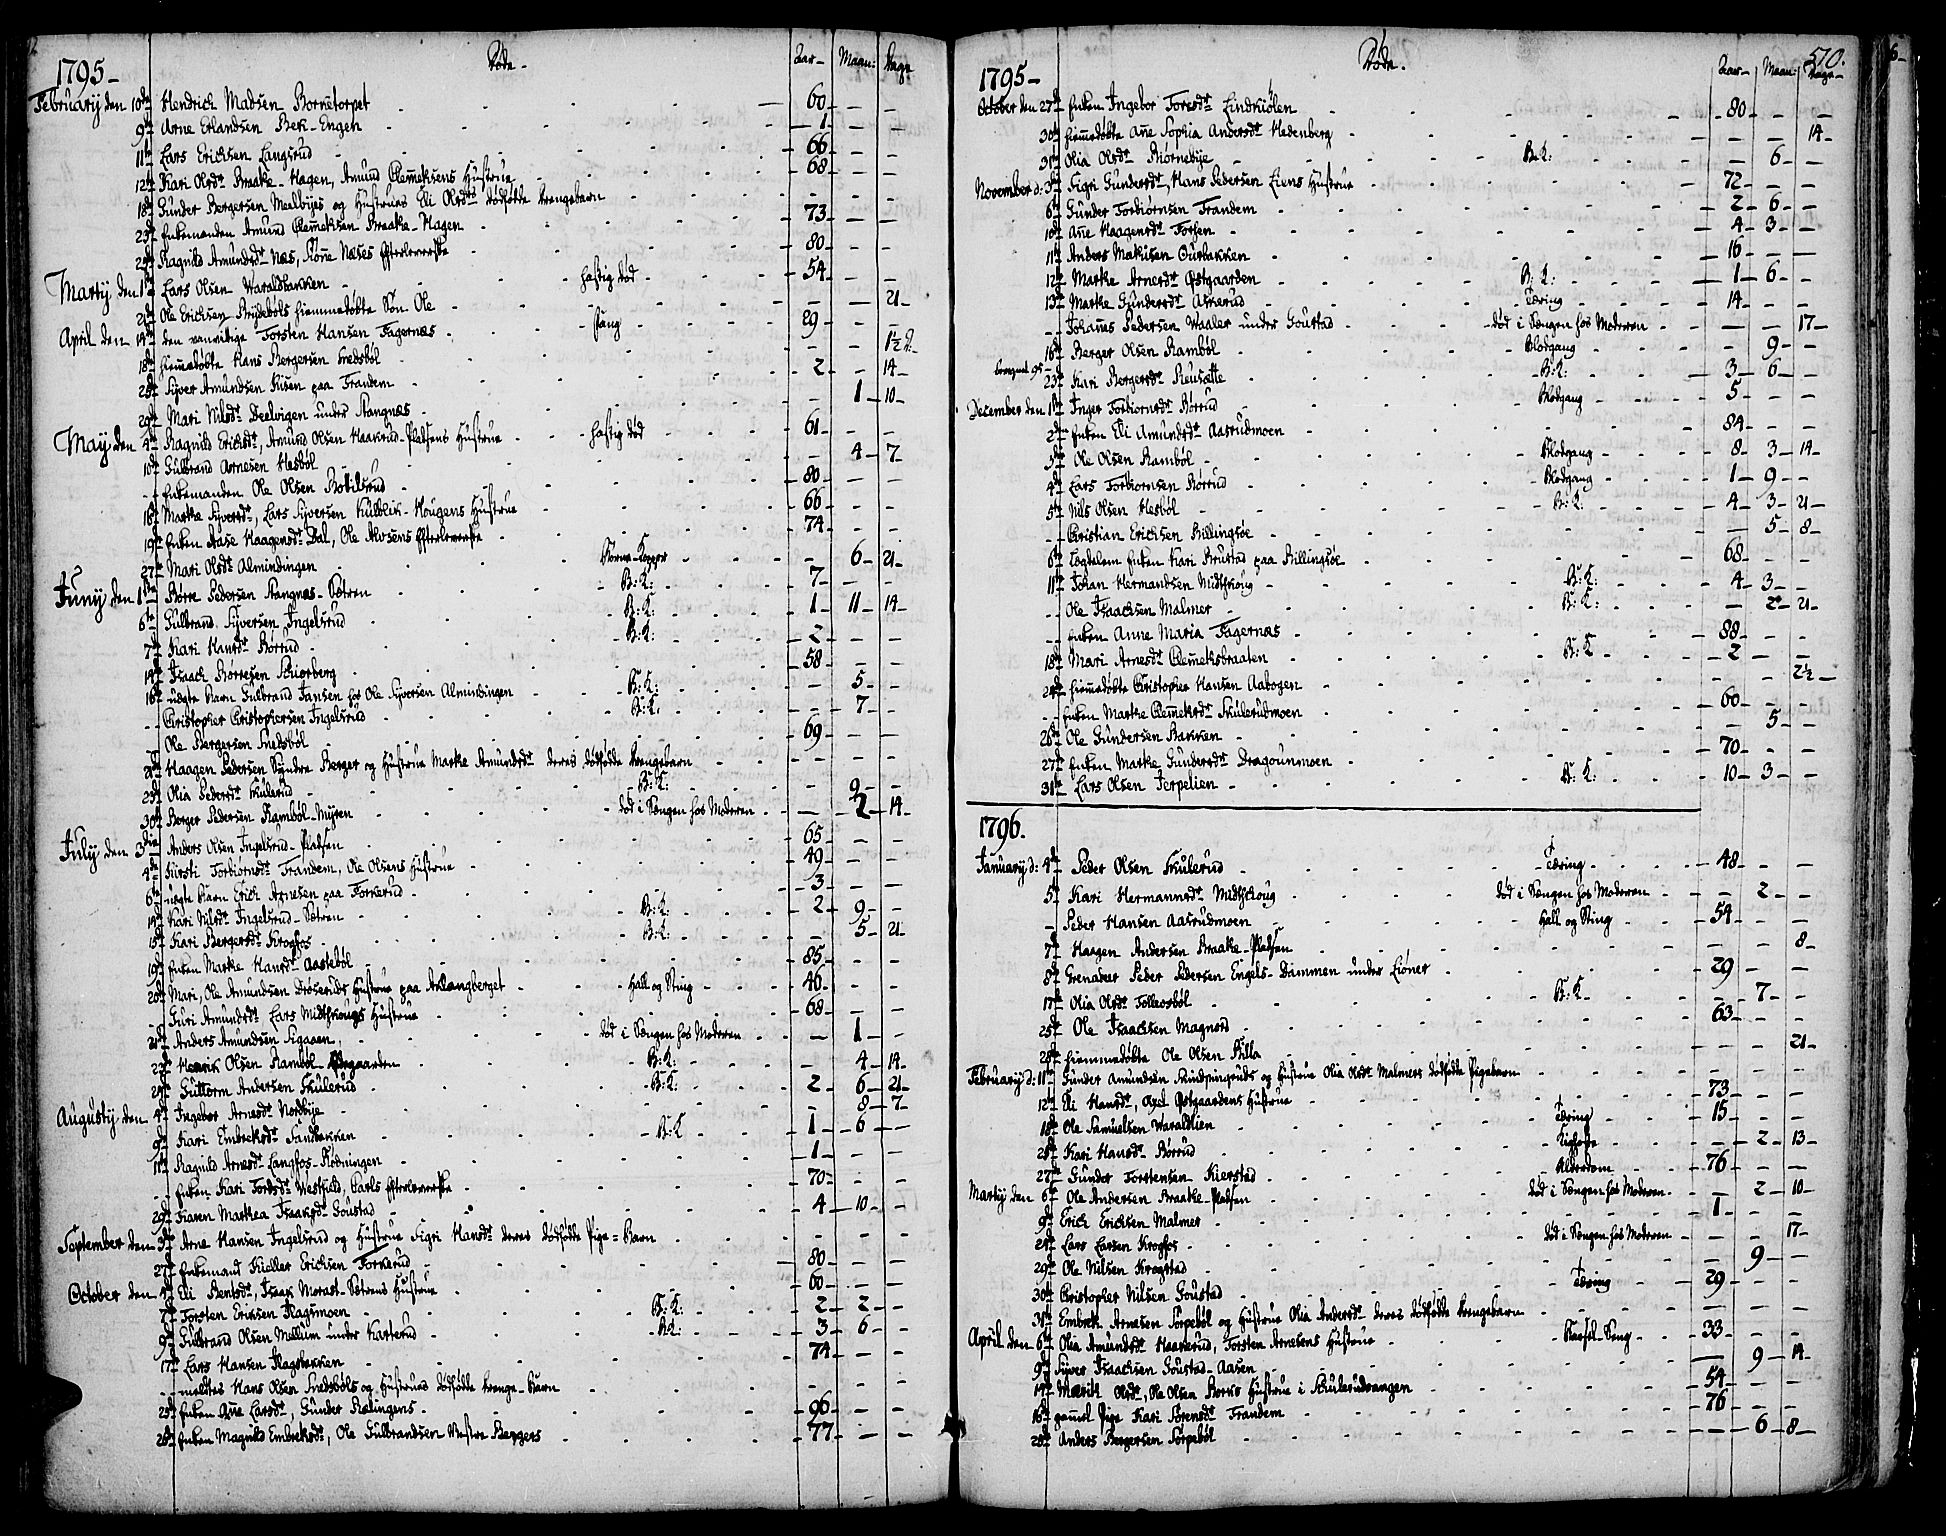 1795 – Døde – Aar – Maan: Dage
Februarij den 10de Hendrich Madsen Bornetorpet – 60 – – –
9de Arne Erlandsen Bek-Engen – 1 – – –
11te Lars Erichsen Langsrud – 66 – – –
12te Kari Olsdr Braake-Hagen, Amund Clemetsens Hustrue – 68 – – –
18de Gunder Bergersen Melbyes og Hustrues Eli Olsdrs dødfødte drengebarn – – –
23de Enkemanden Amund Clemetsen Braake-Hagen – 73 – – –
Ragnild Amundsdr Næs, Efterleverske – 80 – – –
Martij den 1ste Lars Olsen Waraldbakken – hastig død – 54 – – –
21de Ole Erichsen Brydebøls hiemmedøbte Søn Ole – – – 21 –
April den 14de den vanvittige Torsten Hansen Fagernæs – 29 – – –
18de hiemedøbte Hans Bergersen Snedsbøl – – – 1½ D.
Syver Amundsen paa Trandem – 2 – – 14 –
29de Mari Nilsdr Deelvigen under Stangnæs – – 1 – 10 –
May den 4de Ragnild Erichsdr, Amund Olsen Haakerud-Pladsens Hustrue – hastig død – 61 – – –
10de Gulbrand Arnesen Hesbøl – – 4 – 7
– Enkemanden Ole Olsen – 80 – – –
16de Marthe Syversdr, Lars Syversen Kulblik-Hougens Hustrue – 66 – – –
19de Enken Aase Haagensdr Dal, Ole Alvsens Efterleverske – 74 – – –
27de Mari Olsdr Almindingen – Børne Kopper – – 6 – 21 –
Juny den 1ste Børre Pedersen Stangnæs-Sætren – B: K: – 7 – – –
6te Gulbrand Syversen Ingelsrud – B: K: – 1 – 11 – 14 –
7de Kari Hansdr Børrud – B: K: – 2 – – –
14de Isaach Børresen Skiorberg – 58 – – –
16de uægte Barn Gulbrand Jansen hos Ole Syversen Almindingen – B: K: – – 5 – –
– Christopher Christophersen Ingelsrud – B: K: – – 7 – –
Ole Bergersen Snedsbøl – 69 – – –
Haagen Pedersen Syndre Berger og Hustrue Marthe Amundsdr deres dødfødte drengebarn – – –
23de Olia Pedersdr Skulerud – B: K: – – 9 – –
30de Berger Pedersen Rambøl-Myren – død i Sengen hos Moderen – – 2 – 14
July den 3die Anders Olsen Ingelsrud-Pladsen – 65 – – –
4de Kirsti Torbiørnsdr Trandem, Ole Olsens Hustrue – 49 – – –
6te uægte Barn Erich Arnesen paa Torkerud – 3 – – –
14de Kari Nilsdr Ingelsrud-Sætren – B: K: – 2 – 9 – –
15de Kari Bergersdr Krogfos – B: K: – – 5 – 21 –
19de Enken Marthe Hansdr Aastebøl – 85 – – –
20de Mari, Ole Amundsen Droseruds Hustrue paa Aklangberget – Hall og Sting – 46 – – –
– Guri Amundsdr Lars Midtskougs Hustrue – 68 – – –
21de Anders Amundsen Sigaaen – død i Sengen hos Moderen – – 1 – –
Henrik Olsen Rambøl – B: K: – – 4 – 14 –
29de Guttorm Andersen Skulerud – B: K: – 2 – 6 – 21 –
Augusty den 4de Ingebor Arnesdr Nordbye – – 8 – 7 –
9de Kari Embretsdr Sandbakken – B: K – 1 – 6 – –
11te Ragnild Arnesdr Langfos-Rødningen – 1 – – –
– Enken Kari Tordsdr Westfield, Carls Efterleverske – 70 – – –
29de Karen Marthea Isaaksdr Goustad – 4 – 10 – –
September den 3die Arne Hansen Ingelsrud og Hustrue Sigri Hansdr deres dødfødte Pige-Barn – – –
27de Enkemand Kieller Erichsen Torkerud – 80 – – –
October den 4de Eli Bentsdr, Isaak Morast-Sætrens Hustrue – 60 – – –
7de Torsten Eriksen Flagsmoen – B: K: – 2 – 2 – –
9de Gulbrand Olsen Mellum under Karterud – B.K: – 3 – 6 – –
17de Lars Hansen Flagsbakken – 74 – – –
– meldtes Hans Olsen Snedsbøls og Hustrues dødfødte drenge-Barn – – –
25de Enken Ane Larsdr, Gunder Rælingens – 96 – – –
26de Enken Magnild Embretsdr, Ole Gulbrandsen Westre Bergers – 77 – – –
1795 – Døde. Aar – Maan: Dage – 510.
October den 27de Enken Ingebor Toresdr Lindkiølen – 80 – – –
30de hiemedøbte Ane Sophia Andersdr Hedenberg – – – 14 –
31te Olia Olsdr Biørnebye – B: K: – – 6 – –
November d: 3die Sigri Gundersdr, Hans Pedersen Liens Hustrue – 72 – – –
6te Gunder Torbiørnsen Trandem – 2 – 6 –
10de Ane Haagensdr Torsen – 4 – 3 – –
11te Anders Mathisen Ourbakken – 16 – – –
12te Marthe Arnesdr Østgaarden – B: K: – 1 – 6 –
13de Marthe Gundersdr Askerud – Tæring – 14 – – –
– Johanes Pedersen Waaler under Goustad – død i Sengen hos Moderen – – – 17 –
16de Berger Olsen Rambøl – Blodgang – – 9 – –
23de Kari Bergersdr – B: K: – 3 – 6 – –
December den 1ste Inger Torbiornsdr Børrud – Blodgang – 5 – – –
2den Enken Eli Amundsdr Aasrudmoen – 84 – – –
3die Ole Olsen Rambøl – Blodgang – 8 – 3 – 14 –
4de Lars Torbiornsen Børrud – Blodgang – 1 – 9 –
5te Nils Olsen Hesbøl – B: K: – 4 – 3 – 21 –
– Christian Erichsen Billingsøe – – 5 – 8 –
6te Enken Kari Brustad paa Billingsøe – 68 – – –
11te Johan Hermandsen Midtskoug – B: K: – 4 – 3 – –
– Ole Isaachsen Malmer – B: K: – – 2 – 21 –
– Enken Anne Maria Fagernæs – 88 – – –
18de Mari Arnesdr Clemetsbraaten – B: K – 2 – – –
24de hiemedøbte Christopher Hansen Aabogen – – – 2½ –
– Enken Marthe Clemetsdr Skulerudmoen – 60 – – –
26de Ole Gundersen Bakken – – 5 – –
27de Enken Marthe Gundersdr Dragounmoen – 70 – – –
31te Lars Olsen Jerpelien – B: K: – 10 – 3 – –
1796.
January d: 4de Peder Olsen Skulerud – Tæring – 48 – – –
5te Kari Hermansdr Midtskoug – død i Sengen hos Moderen – – 2 – –
– Peder Hansen Aasrudmoen – Hall og Sting – 54 – – –
7de Haagen Andersen Braake-Pladsen – – – 8 –
8de Grenadeer Peder Pedersen Engels-Dammen under Liøner – 29 – – –
17de Olia Olsdr Tolleosbøl – B: K – – 7 – –
25de Ole Isaachsen Magnord – 63 – – –
28de hiemmedøbte Ole Olsen Billa – – – 21 –
February d: 11te Gunder Amundsen Skindpungruds og Hustrue Olia Olsdr Malmers dødfødte Pigebarn – – –
12te Eli Hansdr, Axel Østgaardens Hustrue – 73 – – –
18de Ole Samuelsen Waraldlien – Tæring – 15 – – –
21de Kari Hansdr Børrud – – 2 – 13 –
27de Gunder Torstensen Kierstad – Alderdom – 76 – – –
Martij den 6te Ole Andersen Braake-Pladsen – død i Sengen hos Moderen – – 2 – 10 –
9de Erich Erichsen Malmer – 1 – – –
21de Lars Larsen Krogfos – død i Sengen hos Moderen – – – 17 –
29de Ole Nilsen Krogstad – – 9 – –
30te Christopher Nilsen Goustad – Tæring – 29 – – –
31te Embret Arnesen Torpebøl og Hustrue Olia Andersdr deres dødfødte drengebarn – – –
April den 6te Olia Amundsdr Haakerud, Torsten Arnesens Hustrue – Barsel-Seng – 33 – – –
9de Syver Isaachsen Goustad-Aasen – – 9 – 14 –
14de Marit Olsdr, Ole Olsen Borks Hustrue i Skulerudvangen – 54 – – –
16de gamel Pige Kari Sørensdr Trandem – 76 – – –
28de Anders Bergersen Torpebøl – – 6 – 8 –